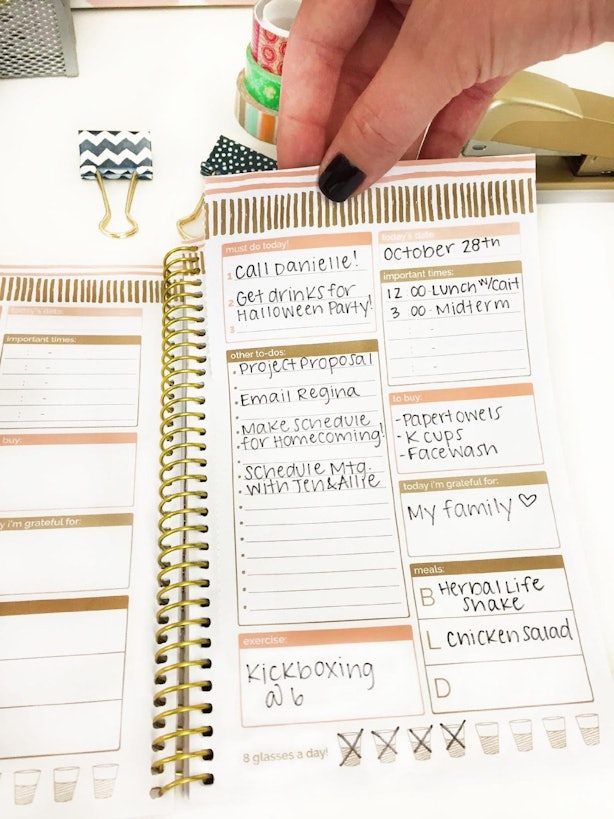 must do today!
1 Call Danielle!
2 Get drinks for
Halloween Party!
3
other to-dos:
Project Proposal
Email Regina
Make schedule
for Homecoming!
Schedule Mtg.
with Jen & Allie
exercise:
Kickboxing
@ 6
8 glasses a day!
today's date:
October 28th
important times:
12 : 00 - Lunch w/ Cait
3 : 00 - Midterm
:  -
:  -
to buy:
- Papertowels
- K cups
- Facewash
today i'm grateful for:
My family ♡
meals:
B Herbal Life
Shake
L Chicken Salad
D
today's date:
important times:
:  -
:  -
:  -
:  -
buy:
y i'm grateful for: